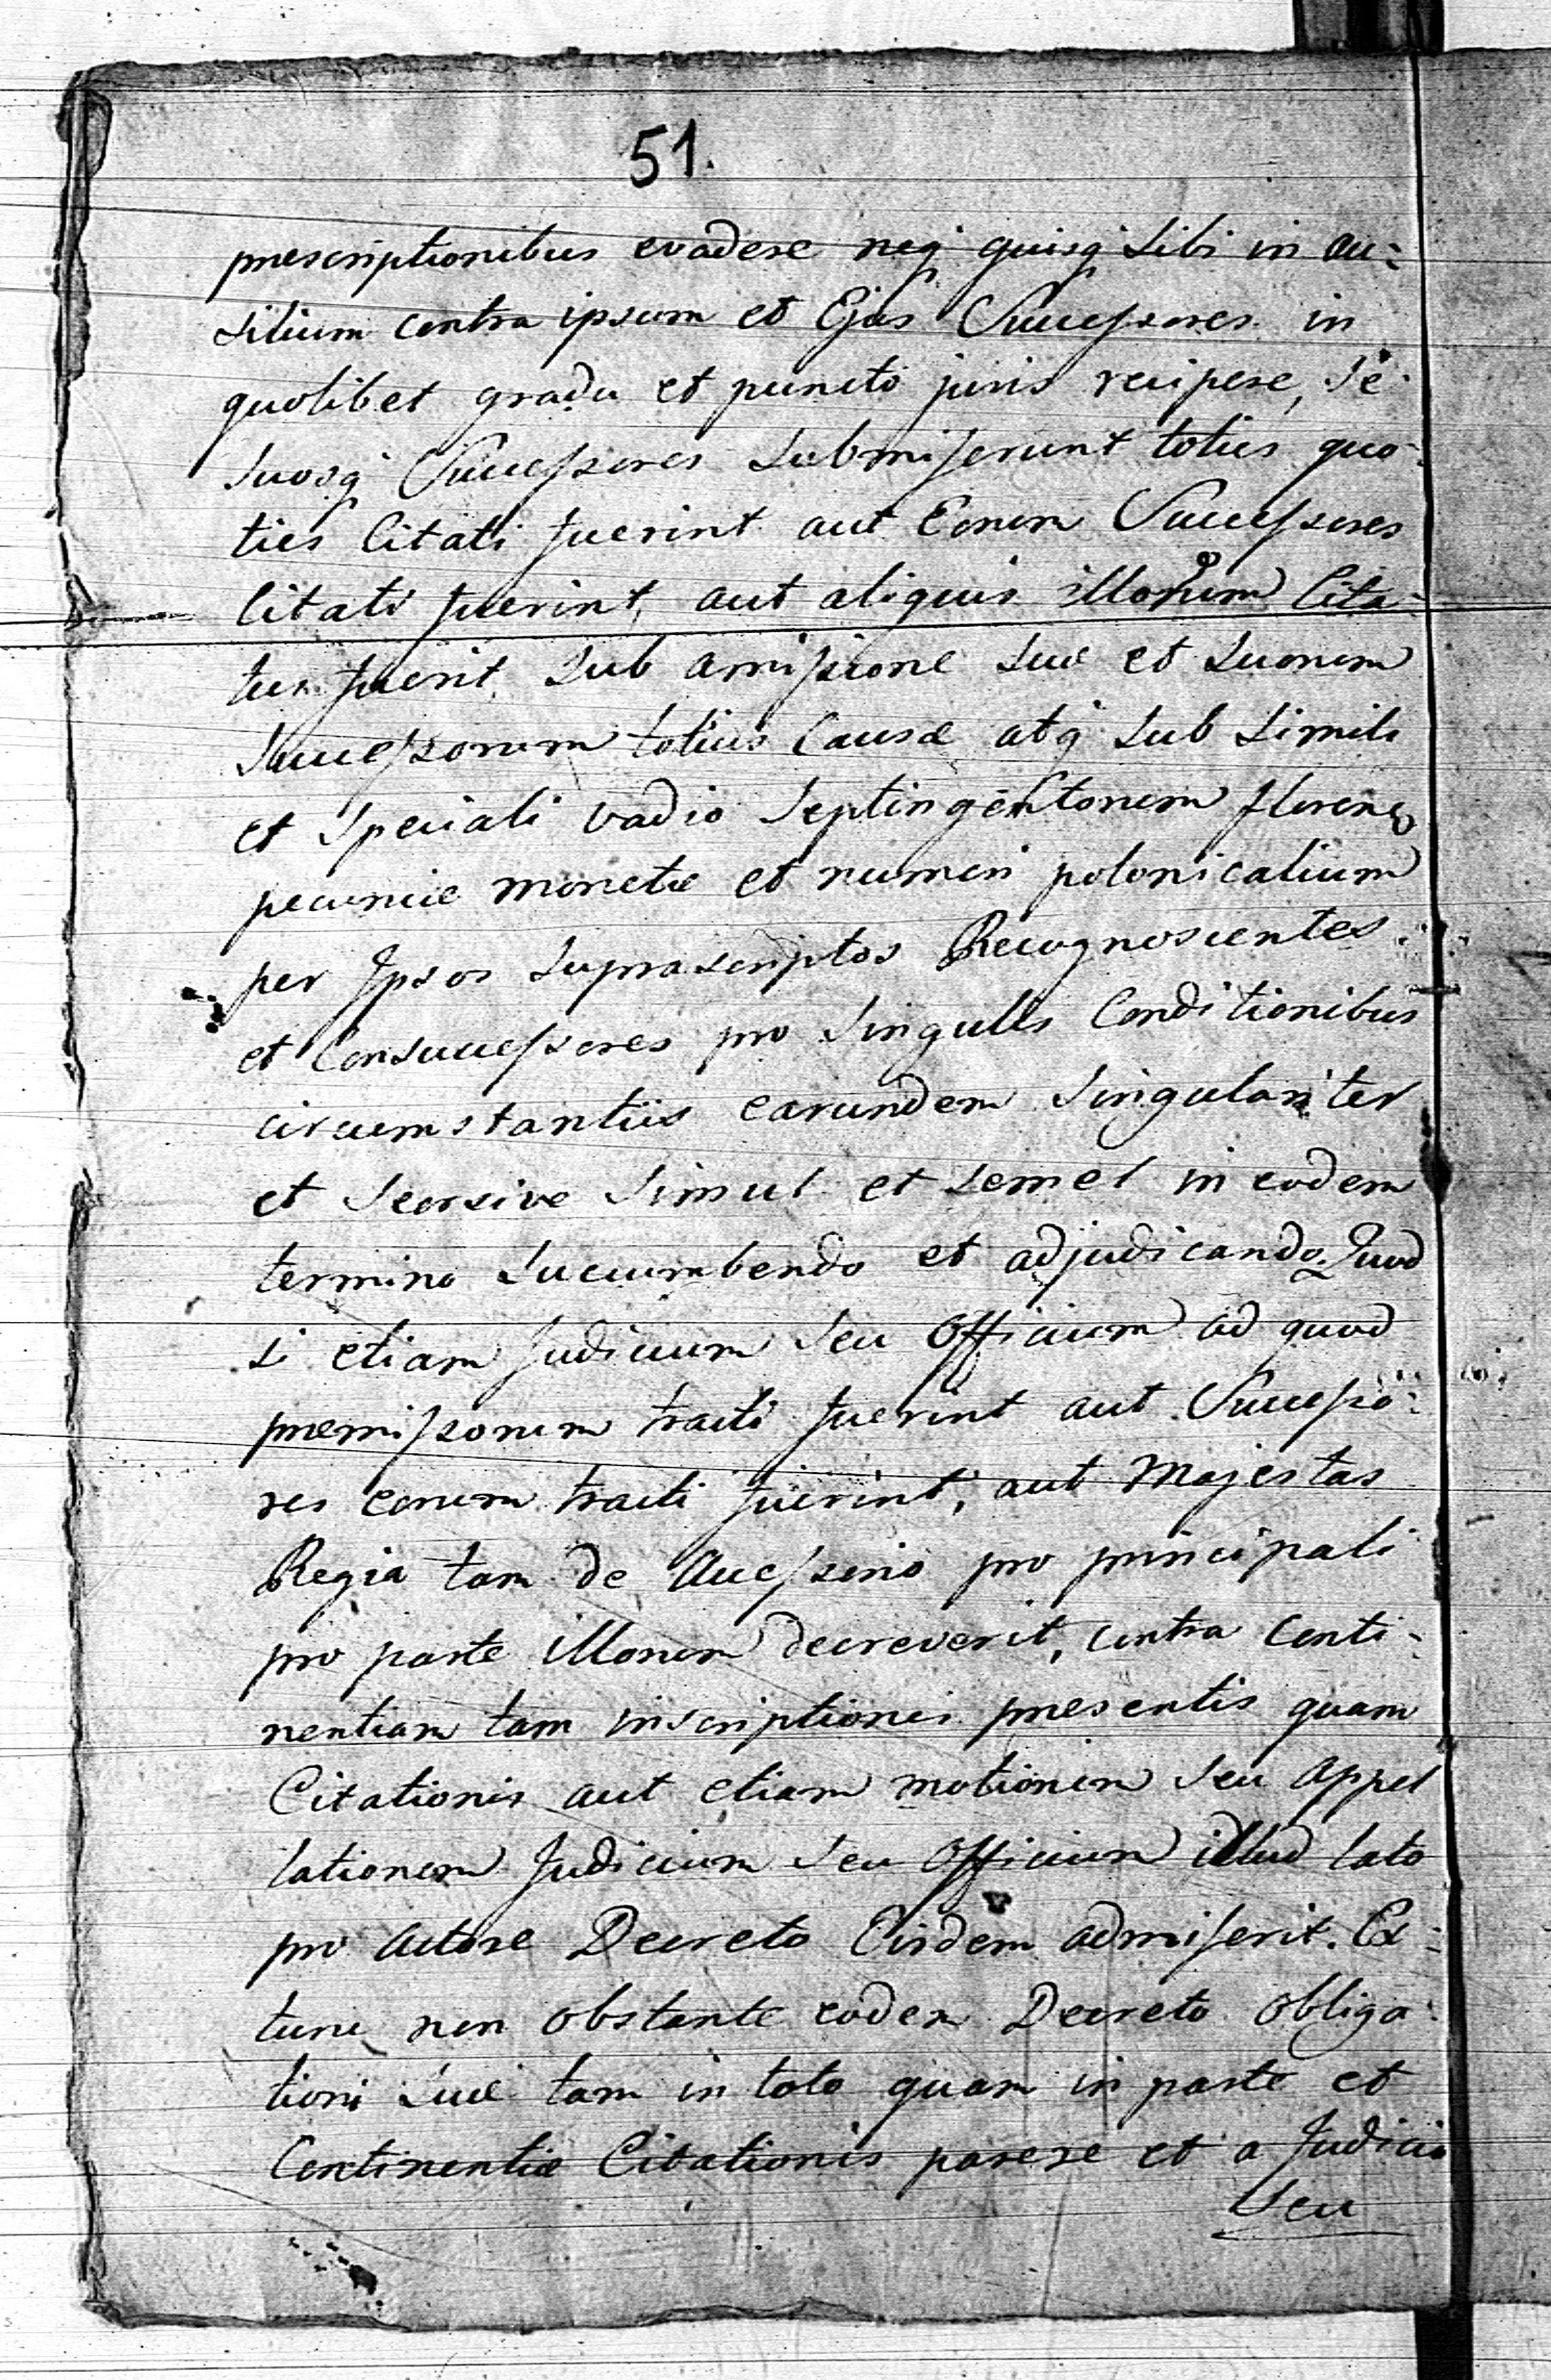 51.
prescriptionibus evadere neq quisq sibi in au-
silium contra ipsum et Ejus Successores in
quolibet gradu et puncto juris recipere, se
suosq Successores submiserunt toties quo-
ties Citati fuerint aut Eorum Successores
Citati fuerint, aut aliquis illorum Cita-
tus fuerit sub amissione suæ et suorum
Successorum totius Causæ atq sub simili
et speciali vadio Septingentorum floreno
pecuniæ monetæ et numeri polonicalium
per Ipsos suprascriptos Recognoscentes
et Consuccessores pro singulis Conditionibus
circumstantiis earundem singulariter
et seorsive simul et semel in eodem
termino succumbendo et adjudicando. Quod
si etiam Judicium seu Officium ad quod
premissorum tracti fuerint aut Successo-
res eorum tracti fuerint, aut Majestas
Regia tam de Accessorio pro principali
pro parte illorum decreverit, contra Conti-
nentiam tam inscriptionis presentis quam
Citationis aut etiam motionem seu appel
lationem Judicium seu Officium illud lato
pro Actore Decreto Eisdem admiserit. Ex-
tunc non obstante eodem Decreto obliga-
tioni suæ tam in toto quam in parte et
Continentiæ Citationis parere et a Judicio
seu